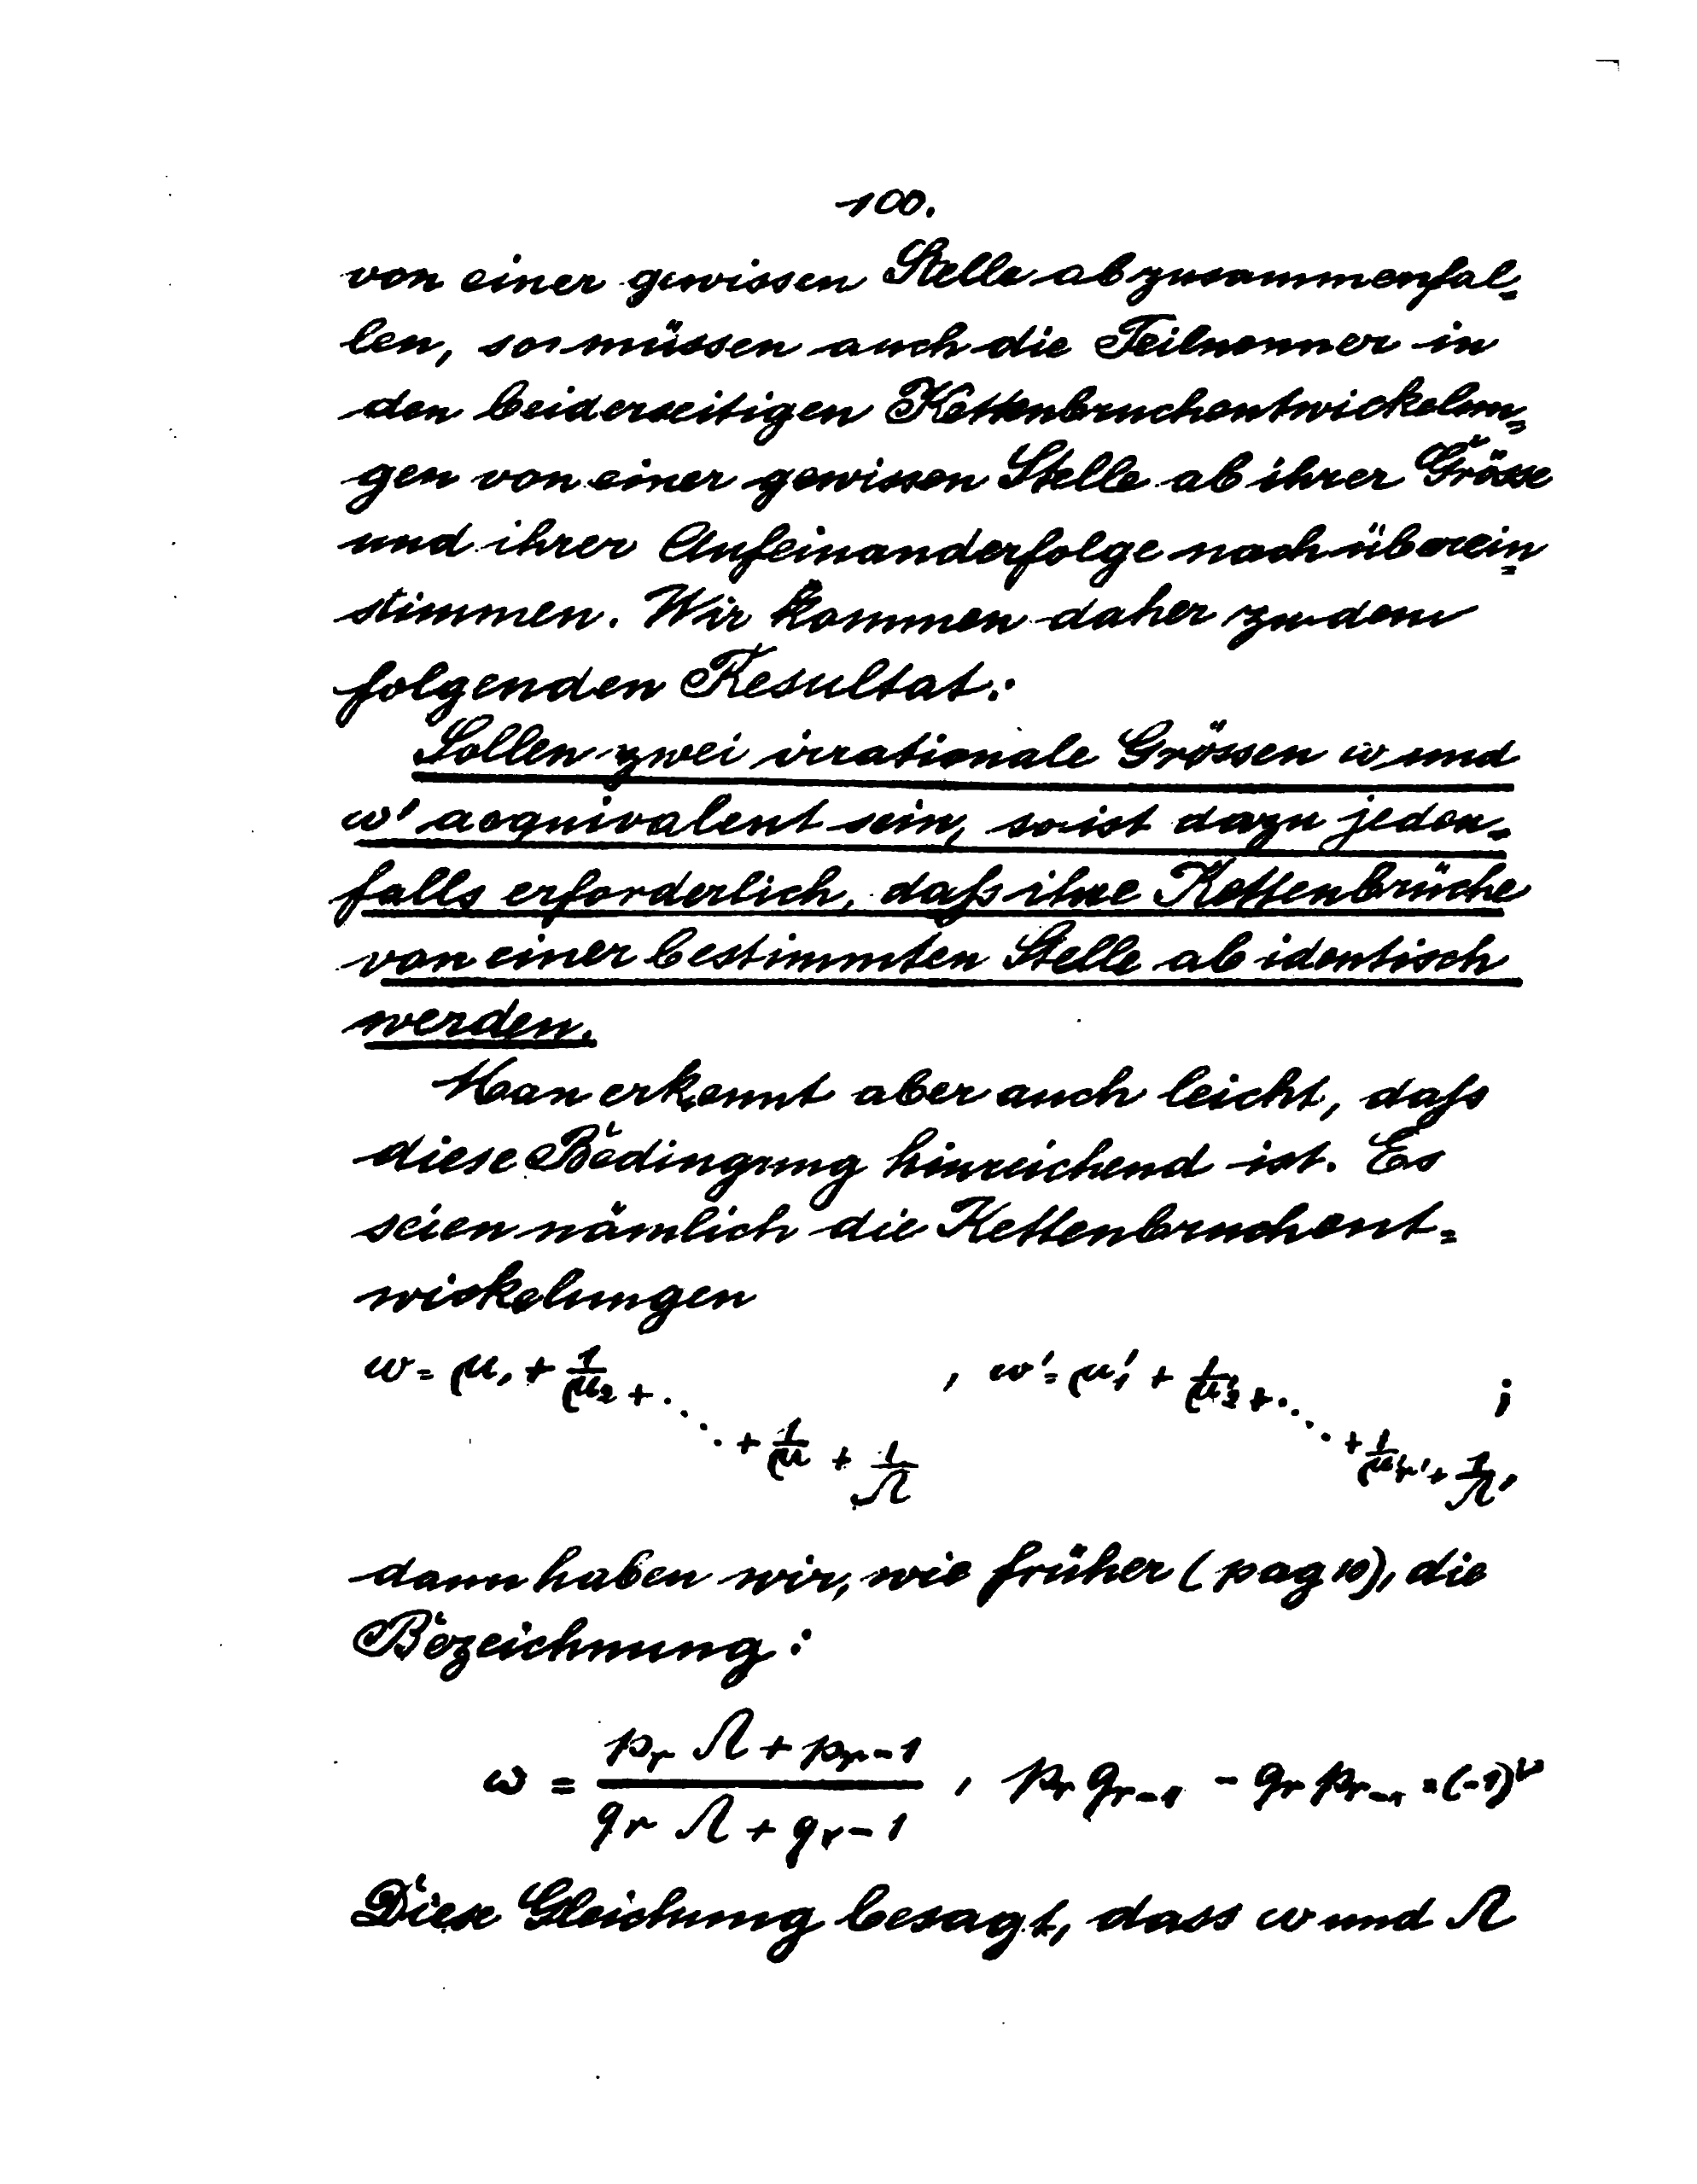 100.
von einer gewissen Stelle ab zusammenfal-
len, so müssen auch die Teilnenner in
den beiderseitigen Kettenbruchentwickelun-
gen von einer gewissen Stelle ab ihrer Grösse
und ihrer Aufeinanderfolge nach überein-
stimmen. Wir kommen daher zu dem
folgenden Resultat:
Sollen zwei irrationale Grössen ω und
ω' aequivalent sein, so ist dazu jeden-
falls erforderlich, daß ihre Kettenbrüche
von einer bestimmten Stelle ab identisch
werden.
Man erkennt aber auch leicht, daß
diese Bedingung hinreichend ist. Es
seien nämlich die Kettenbruchent-
wickelungen
ω = μ₁ + 1/μ₂ + ⋱ + 1/μ + 1/Ω , ω' = μ'₁ + 1/μ'₂ + ⋱ + 1/μ'r' + 1/Ω' ;
dann haben wir, wie früher (pag 10), die
Bezeichnung:
ω = (p_r Ω + p_{r-1}) / (q_r Ω + q_{r-1}) , p_r q_{r-1} - q_r p_{r-1} = (-1)^r
Diese Gleichung besagt, dass ω und Ω